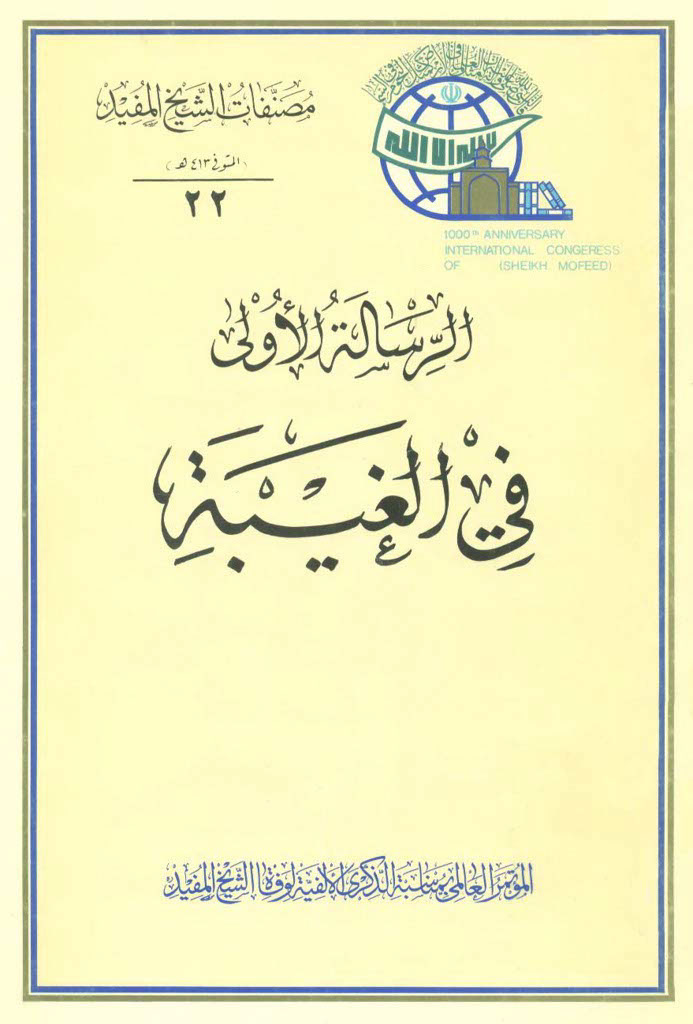 مُصَنَّفَاتُ الشَّيْخِ الْمُفِيْدِ
(المتوفى ٤١٣ هـ)
٢٢
لا إله إلا الله
1000th ANNIVERSARY
INTERNATIONAL CONGERESS
OF (SHEIKH MOFEED)
الرِّسَالَةُ الأُوْلَى
فِي الْغَيْبَةِ
المؤتمر العالمي بمناسبة الذكرى الألفية لوفاة الشيخ المفيد